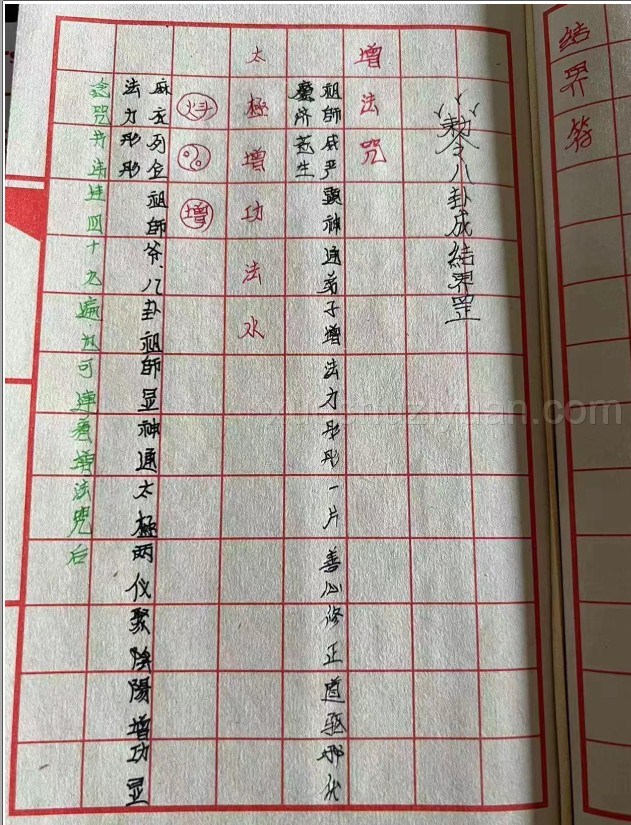 結界符
勅令八卦成結界罡
增法咒
祖師威严顕神通弟子增法力彤彤一片善心修正道驱邪伏
魔济苍生
太極增功法水
增
麻衣列位祖師爷八卦祖師显神通太極两仪聚陰陽增功显
法力彤彤
念咒并步罡四十九遍也可連着增法咒后
xuanshuziyuan.com